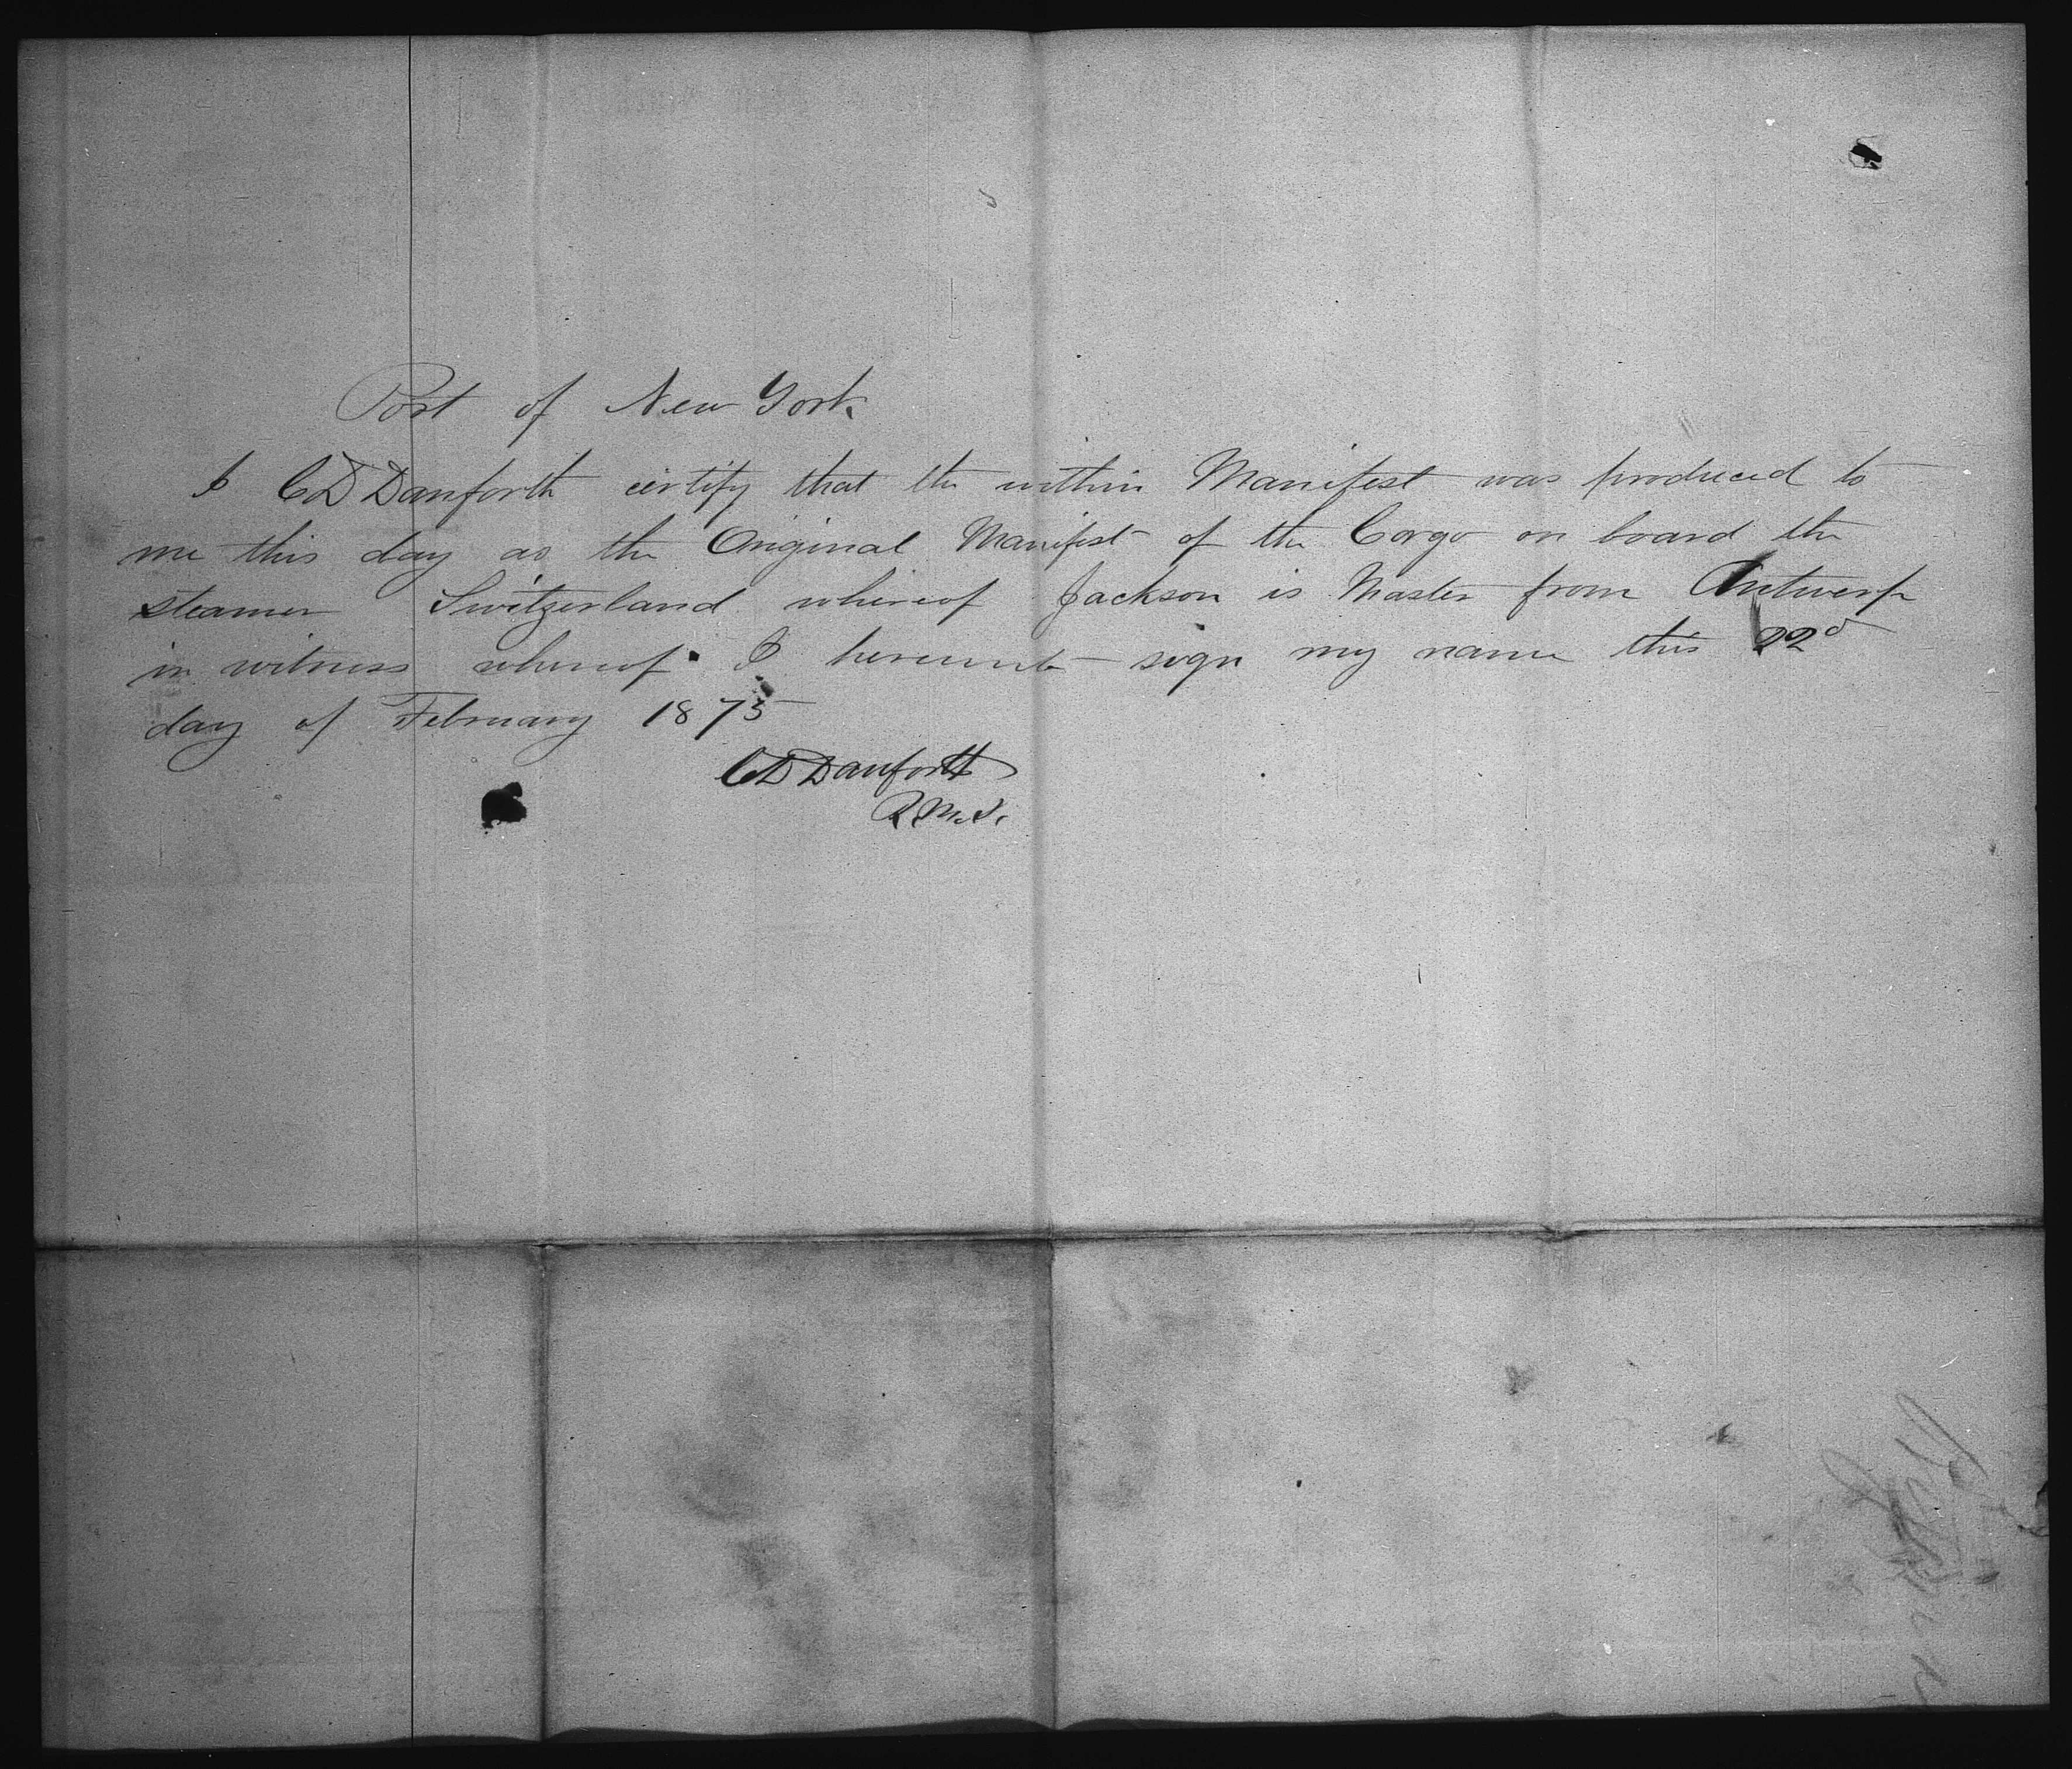 Port of New York
I CD Danforth certify that the within Manifest was produced to
me this day as the Original Manifest of the Cargo on board the
steamer Switzerland whereof Jackson is Master from Antwerp
in witness whereof I hereunto sign my name this 22d
day of February 1875
CD Danforth